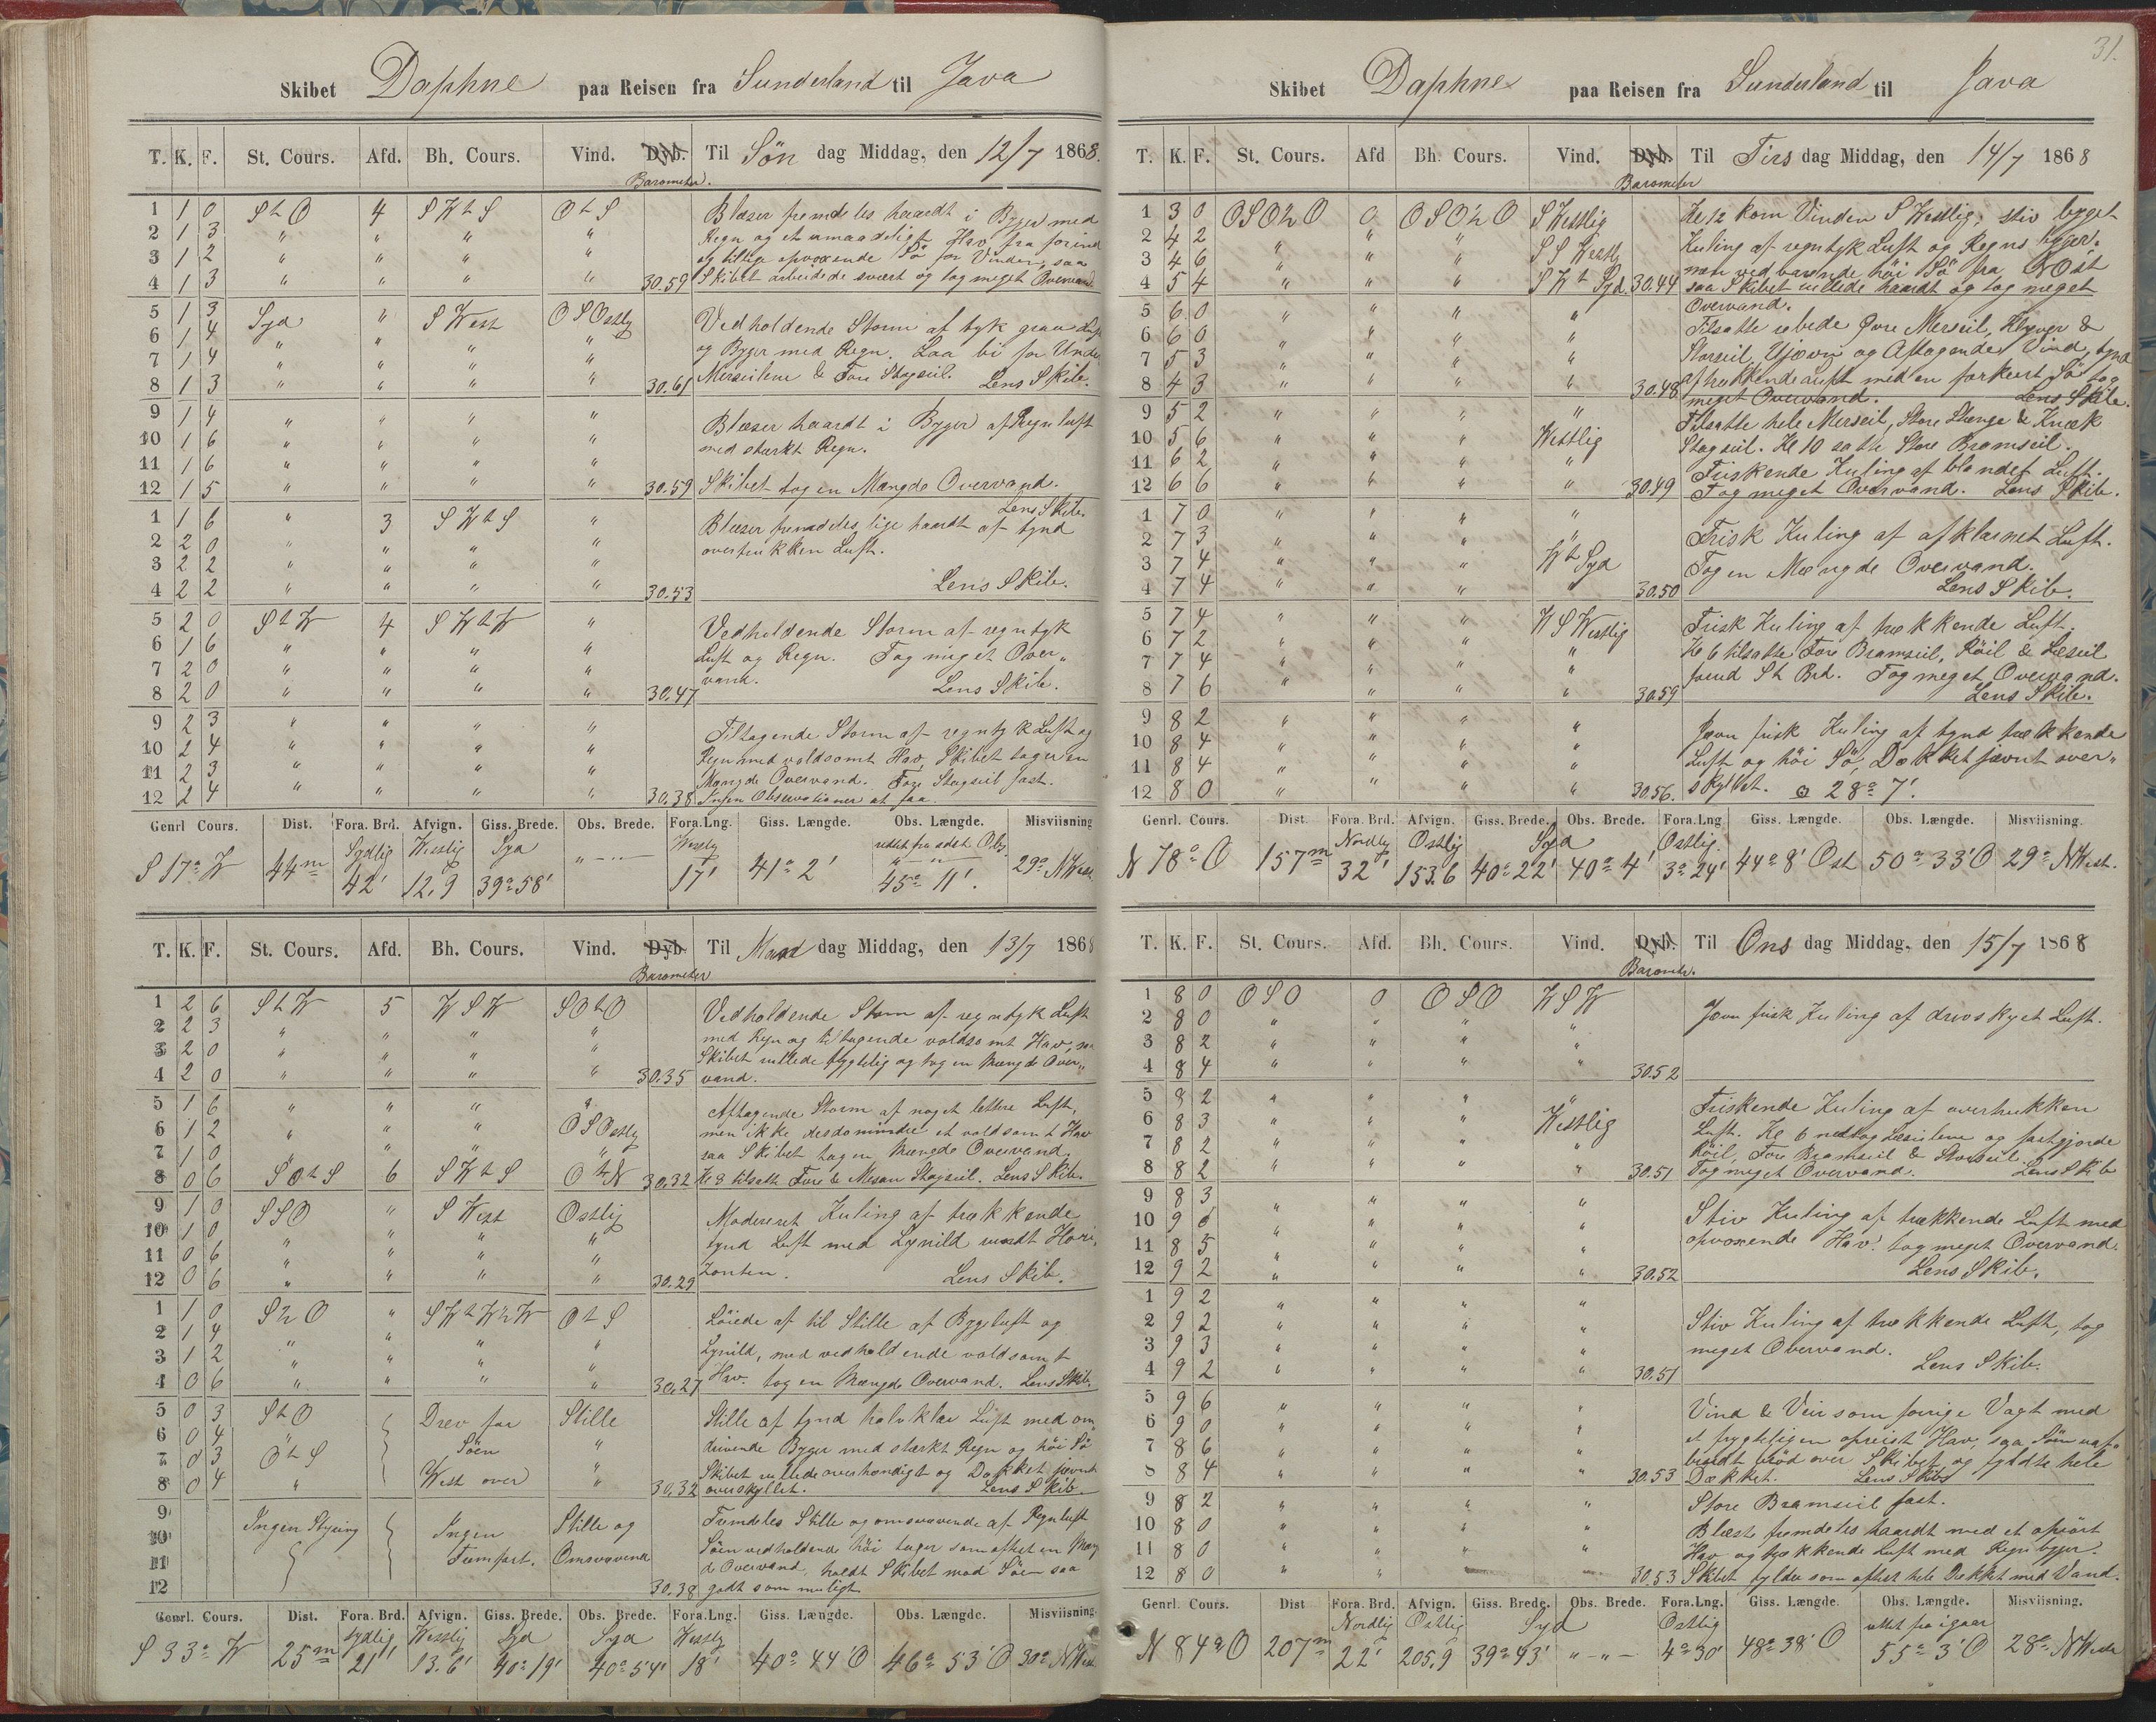 Skibet Daphne paa Reisen fra Sunderland til Java
T. K. F. St. Cours. Afd. Bh. Cours. Vind. Dyb. Barometer. Til Søn dag Middag, den 12/7 1868.
1 1 0 S t O 4 S W t S O t S Blæser fremdeles haardt i Byger med
2 1 3 " " " " Regn og et umaadeligt Hav fra forind
3 1 2 " " " " og tillige opvoxende Sö for Vinden, saa
4 1 3 " " " " 30.59 Skibet arbeidede svært og tog meget Overvand
5 1 3 Syd " S West O S Ostly
6 1 4 " " " " Vedholdende Storm af tyk graa Luft
7 1 4 " " " " og Byger med Regn. Laa bi for Under
8 1 3 " " " " 30.61 Merseilene & Fore Stagseil. Lens Skib.
9 1 4 " " " " Blæser haardt i Byger af Regnluft
10 1 6 " " " " med stærkt Regn.
11 1 6 " " " "
12 1 5 " " " " 30.59 Skibet tog en Mængde Overvand.
Lens Skib.
1 1 6 " 3 S W t S " Blæser fremdeles lige haardt af tynd
2 2 0 " " " " overtrukken Luft.
3 2 2 " " " "
4 2 2 " " " " 30.53 Lens Skib.
5 2 0 S t W 4 S W t W " Vedholdende Storm af regntyk
6 1 6 " " " " Luft og Regn. Tog meget Over„
7 2 0 " " " " vand.
8 2 0 " " " " 30.47 Lens Skib.
9 2 3 " " " " Tiltagende Storm af regntyk Luft og
10 2 4 " " " " Regn med voldsomt Hav, Skibet tager en
11 2 3 " " " " Mængde Overvand. Fore Stagseil fast.
12 2 4 " " " " 30.38 Ingen Observationer at faa.
Genrl Cours. Dist. Fora. Brd. Afvign. Giss. Brede. Obs. Brede. Fora.Lng. Giss. Længde. Obs. Længde. Misviisning
Sydlig Westlig Syd Westly
S 17° W 44m 42' 12,9 39° 58' " — " 17' 41° 2' 45° 11'. 29° N West
T. K. F. St. Cours. Afd. Bh. Cours. Vind. Dyb. Barometer Til Man dag Middag, den 13/7 1868
1 2 6 S t W 5 W S W S O t O Vedholdende Storm af regntyk Luft
2 2 3 " " " " med Regn og tiltagende voldsomt Hav, saa
3 2 0 " " " " Skibet rullede frygtelig og tog en Mængde Over„
4 2 0 " " " " 30.35 vand.
5 1 6 " " " " Aftagende Storm af noget lettere Luft,
6 1 2 " " " O S Ostly men ikke desdomindre et voldsomt Hav
7 1 0 " " " " saa Skibet tog en Mængde Overvand.
8 0 6 S O t S 6 S W t S O t N 30.32 Kl 8 tilsatte Fore & Mesan Stagseil. Lens Skib.
9 1 0 S S O " S West Ostlig Modereret Kuling af trækkende
10 1 0 " " " " tynd Luft med Lynild rundt Hori„
11 0 6 " " " "
12 0 6 " " " " 30.29 zonten. Lens Skib.
1 1 0 S t O " S W t W ½ W O t S Löiede af til Stille af Bygeluft og
2 1 4 " " " " Lynild, med vedholdende voldsomt
3 1 2 " " " "
4 0 6 " " " " 30.27 Hav. tog en Mængde Overvand. Lens Skib.
5 0 3 S t O Drev for Stille Stille af tynd halvklar Luft med om„
6 0 4 " Söen " drivende Byger med stærkt Regn og höi Sö
7 0 3 O t S Skibet rullede overhændigt og Dækket jævnt
8 0 4 " West over " 30.32 overskyllet. Lens Skib.
9 Ingen Styring Ingen Stille og Fremdeles Stille og omsvævende af Regnluft
10 Fremfart. Omsvævende Söen vedholdende höi tager som oftest en Mæng
11 de Overvand, holdt Skibet mod Söen saa
12 30.38 godt som muligt
Genrl. Cours. Dist. Fora. Brd. Afvign. Giss. Brede. Obs. Brede. Fora.Lng. Giss. Længde. Obs. Længde. Misviisning
Sydlig Westlig Syd Syd Westly
S 33° W 25m 21' 13.6' 40° 19' 40° 54' 18' 40° 44' O 46° 53' O 30° N West
31.
Skibet Daphne paa Reisen fra Sunderland til Java
T. K. F. St. Cours. Afd Bh. Cours. Vind. Dyb. Barometer Til Tirs dag Middag, den 14/7 1868
1 3 0 O S O ½ O 0 O S O ½ O S Westlig Kl 12 kom Vinden S Westlig, stiv byget
2 4 2 " " " S S Westly Kuling af regntyk Luft og Regns byger,
3 4 6 " " " " men vedvarende höi Sö fra N Ost
4 5 4 " " " S W t Syd. 30.44 saa Skibet rullede haardt og tog meget
5 6 0 " " " " Overvand.
6 6 0 " " " " Tilsatte rebede Øvre Merseil, Klyver &
7 5 3 " " " " Storseil. Ujævn og Aftagende Vind, tynd
8 4 3 " " " " 30.48 aftrækkende Luft med en forkeert Sö tog
meget Overvand. Lens Skib.
9 5 2 " " " " Tilsatte hele Merseil, Store Stænge & Knæk
10 5 6 " " " Westlig Stagseil. Kl 10 satte Store Bramseil.
11 6 2 " " " " Friskende Kuling af blandet Luft.
12 6 6 " " " " 30.49 Tog meget Overvand. Lens Skib.
1 7 0 " " " "
2 7 3 " " " " Frisk Kuling af afklarnet Luft.
3 7 4 " " " W t Syd Tog en Mængde Overvand.
4 7 4 " " " " 30.50 Lens Skib.
5 7 4 " " " W S Westlig Frisk Kuling af trækkende Luft.
6 7 2 " " " " Kl 6 tilsatte Fore Bramseil, Röil & Læseil
7 7 4 " " " " forud St Brd. Tog meget Overvand.
8 7 6 " " " " 30.59 Lens Skib.
9 8 2 " " " " Jævn frisk Kuling af tynd trækkende
10 8 4 " " " " Luft og höi Sö, Dækket jævnt over„
11 8 4 " " " "
12 8 0 " " " " 30.56. skyllet. 28° 7'.
Genrl. Cours. Dist. Fora. Brd. Afvign. Giss. Brede. Obs. Brede. Fora.Lng. Giss. Længde. Obs. Længde. Misviisning.
Nordly Ostlig Syd Ostlig.
N 78° O 157m 32' 153.6 40° 22' 40° 4' 3° 24' 44° 8' Ost 50° 33' O 29° N West.
T. K. F. St. Cours. Afd. Bh. Cours. Vind. Dyb. Barometr. Til Ons dag Middag, den 15/7 1868
1 8 0 O S O 0 O S O W S W Jævn frisk Kuling af drivskyet Luft.
2 8 0 " " " "
3 8 2 " " " "
4 8 4 " " " " 30.52
5 9 2 " " " " Friskende Kuling af overtrukken
6 8 3 " " " Westlig Luft. Kl 6 nedtog Læseilene og fastgjorde
7 8 2 " " " " Röil, Fore Bramseil & Storseil.
8 8 2 " " " " 30.51 Tog meget Overvand. Lens Skib
9 8 3 " " " " Stiv Kuling af trækkende Luft med
10 9 6 " " " " opvoxende Hav. tog meget Overvand.
11 8 5 " " " "
12 9 2 " " " " 30.52 Lens Skib.
1 9 2 " " " "
2 9 2 " " " " Stiv Kuling af trækkende Luft, tog
3 9 3 " " " " meget Overvand.
4 9 2 " " " " 30.51 Lens Skib.
5 9 6 " " " " Vind & Veir som forrige Vagt med
6 9 0 " " " " et frygteligen opreist Hav, saa Söen uaf„
7 8 6 " " " " brudt bröd over Skibet og fyldte hele
8 8 4 " " " " 30.53 Dækket. Lens Skib
9 8 2 " " " " Store Bramseil fast.
10 8 0 " " Blæste fremdeles haardt med et oprört
11 8 0 " " Hav og trækkende Luft med Regn byger.
12 8 0 " " 30.53 Skibet fyldes som oftest hele Dækket med Vand.
Genrl. Cours. Dist Fora. Brd. Afvign. Giss. Brede. Obs. Brede. Fora.Lng. Giss. Længde. Obs. Længde. Misviisning.
Nordlig Ostlig Syd Ostlig fra igaar
N 84° O 207m 22' 205,9 39° 43' " — " — 4° 30' 48° 38' O 55° 3' O 28° N West